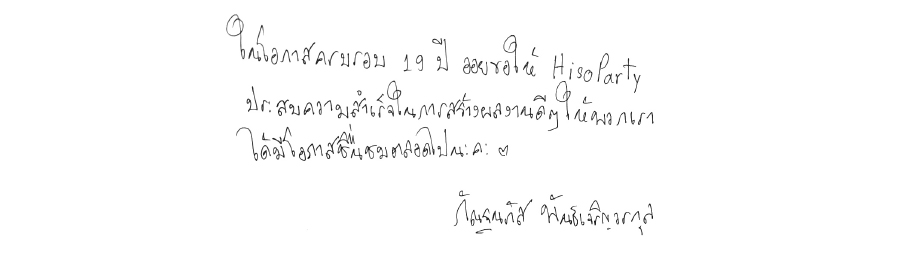 ในโอกาสครบรอบ 19 ปี ออยขอให้ HisoParty
ประสบความสำเร็จในการสร้างผลงานดีๆ ให้พวกเรา
ได้มีโอกาสชื่นชมตลอดไปนะคะ
พันธ์เจริญวรกุล